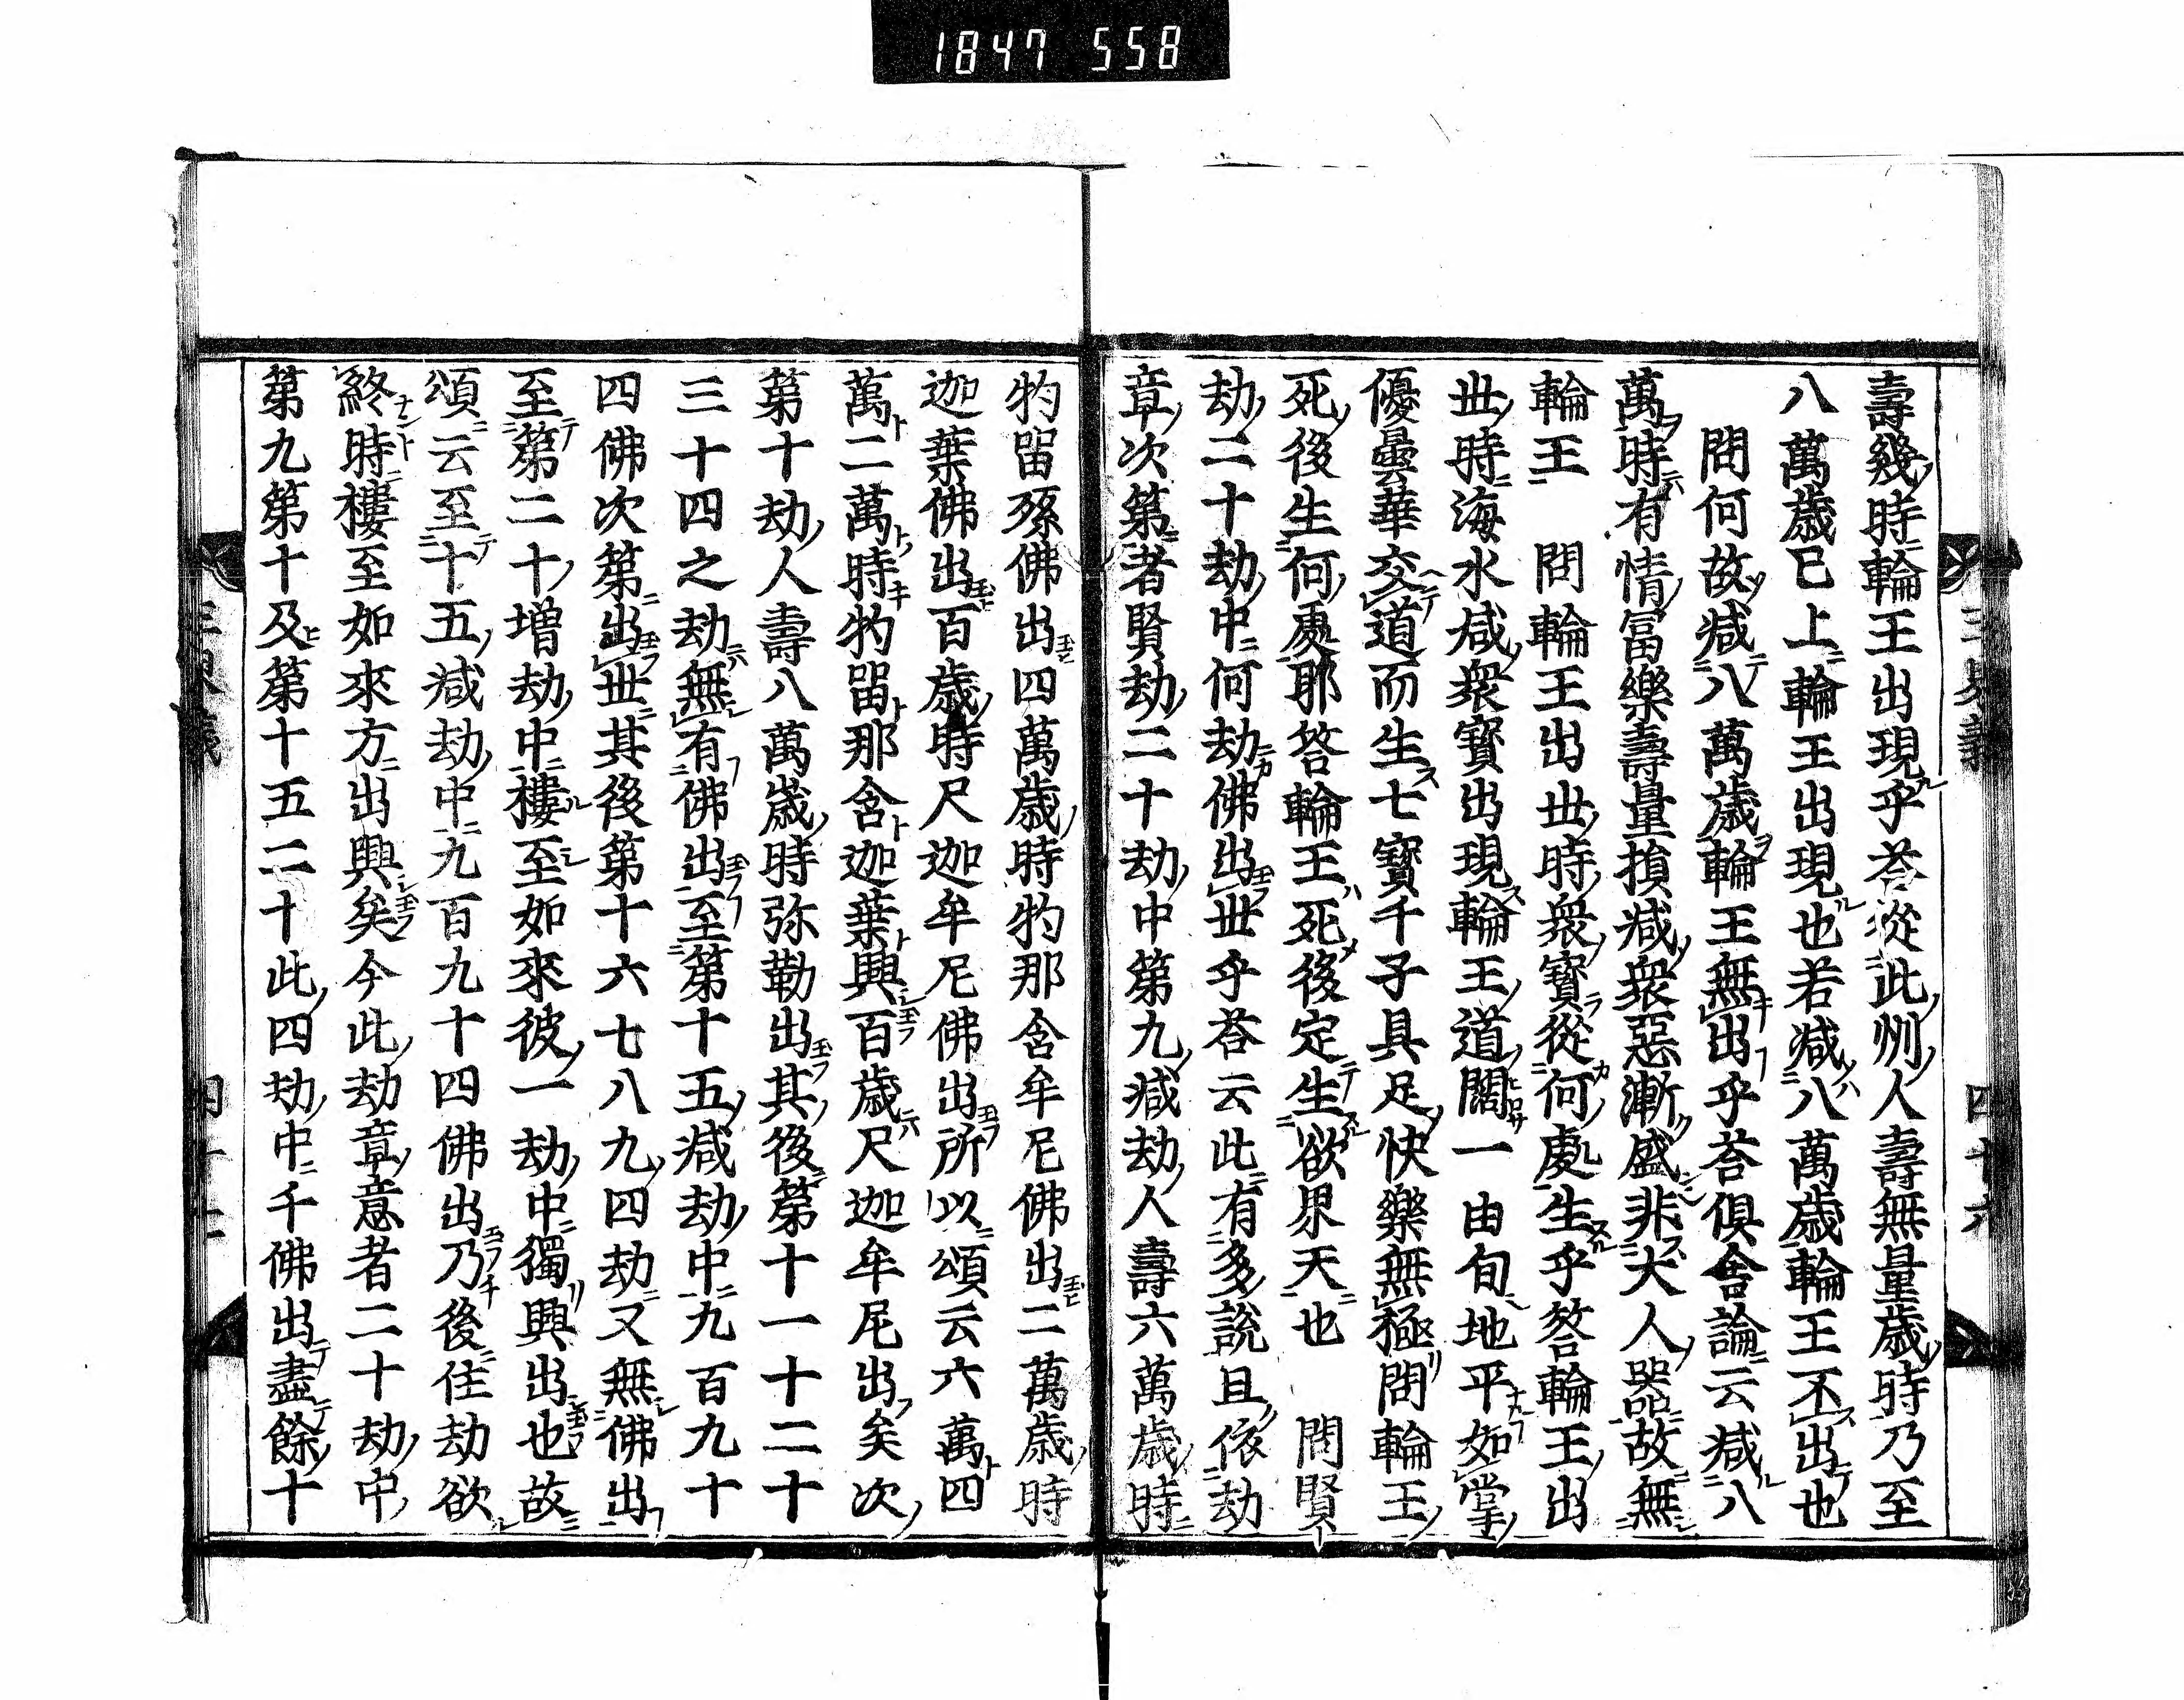 1847 558
壽幾時輪王出現乎荅從此洲人壽無量歳時乃至
八萬歳已上輪王出現也若減八萬歳輪王不出也
問何故減八萬歳輪王無出乎荅倶舎論云減八
萬時有情冨樂壽量損減衆惡漸盛非大人器故無
輪王　問輪王出世時衆寳從何處生乎答輪王出
世時海水減衆寳出現輪王道闊一由旬地平如掌
優曇華交道而生七寳千子具足快樂無極問輪王
死後生何處耶答輪王死後定生欲界天也　問賢
劫二十劫中何劫佛出世乎荅云此有多説且依劫
章次第者賢劫二十劫中第九減劫人壽六萬歳時
牞留孫佛出四萬歳時牞那含牟尼佛出二萬歳時
迦葉佛出百歳時尺迦牟尼佛出所以頌云六萬四
萬二萬時牞留那含迦葉興百歳尺迦牟尼出矣次
第十劫人壽八萬歳時弥勒出其後第十一十二十
三十四之劫無有佛出至第十五減劫中九百九十
四佛次第出世其後第十六七八九四劫又無佛出
至第二十増劫中樓至如來彼一劫中獨興出也故
頌云至十五減劫中九百九十四佛出乃後住劫欲
終時樓至如來方出興矣今此劫章意者二十劫中
第九第十及第十五二十此四劫中千佛出盡餘十